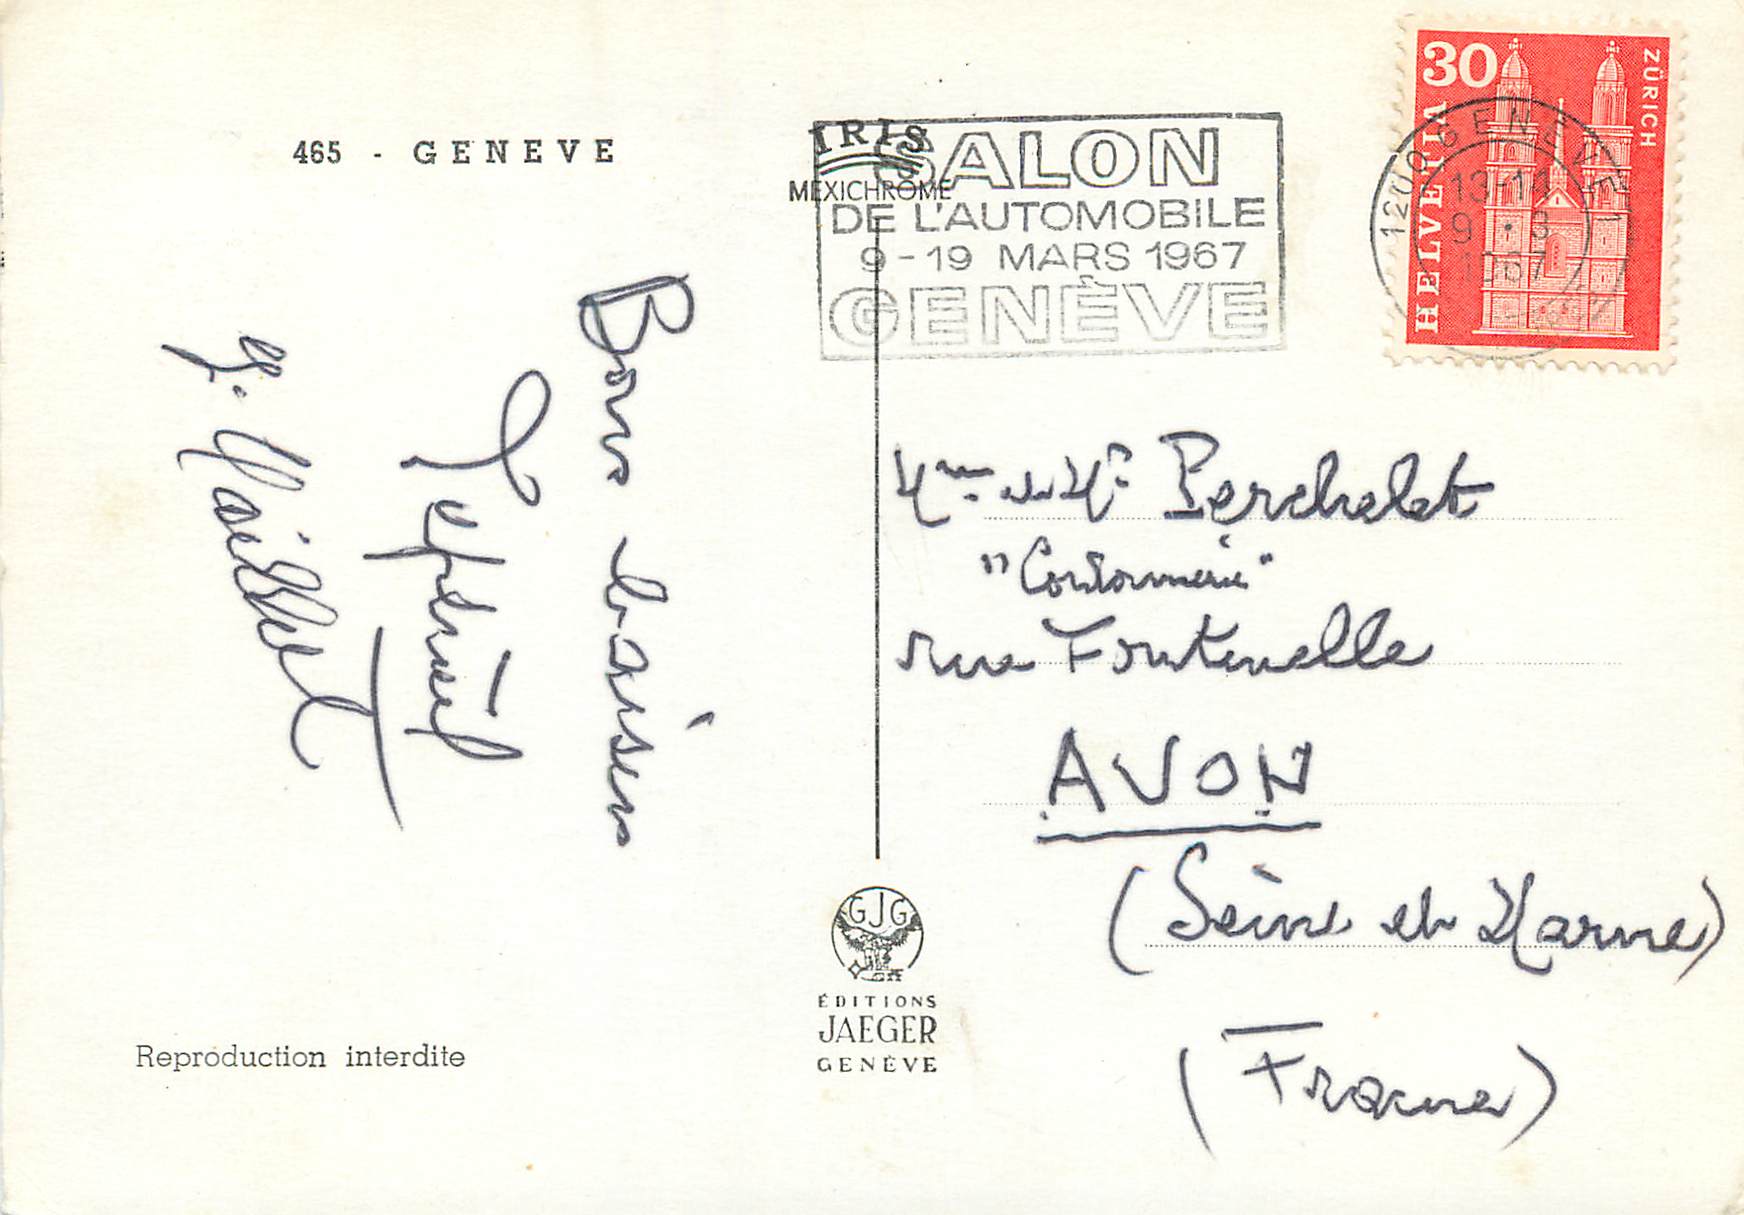 465 - GENEVE
IRIS
MEXICHROME
SALON
DE L'AUTOMOBILE
9-19 MARS 1967
GENÈVE
30
ZÜRICH
HELVETIA
1200 GENÈVE
13-14
9 • 3
1967
Bons baisers
G. Maillet
Mme et Mr Perchelet
"Cordonnerie"
rue Fontenelle
AVON
(Seine et Marne)
(France)
GJG
ÉDITIONS
JAEGER
GENÈVE
Reproduction interdite